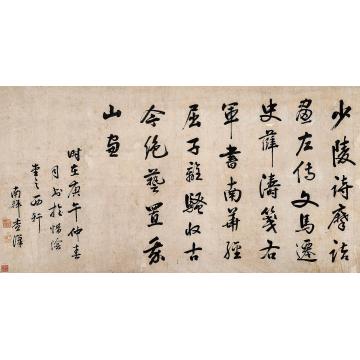 少陵詩摩詰
畫左傳文馬遷
史薛濤箋右
軍書南華經
屈子離騷收古
今絕藝置我
山窗
時在庚午仲春
月書於惜陰
堂之西軒
南